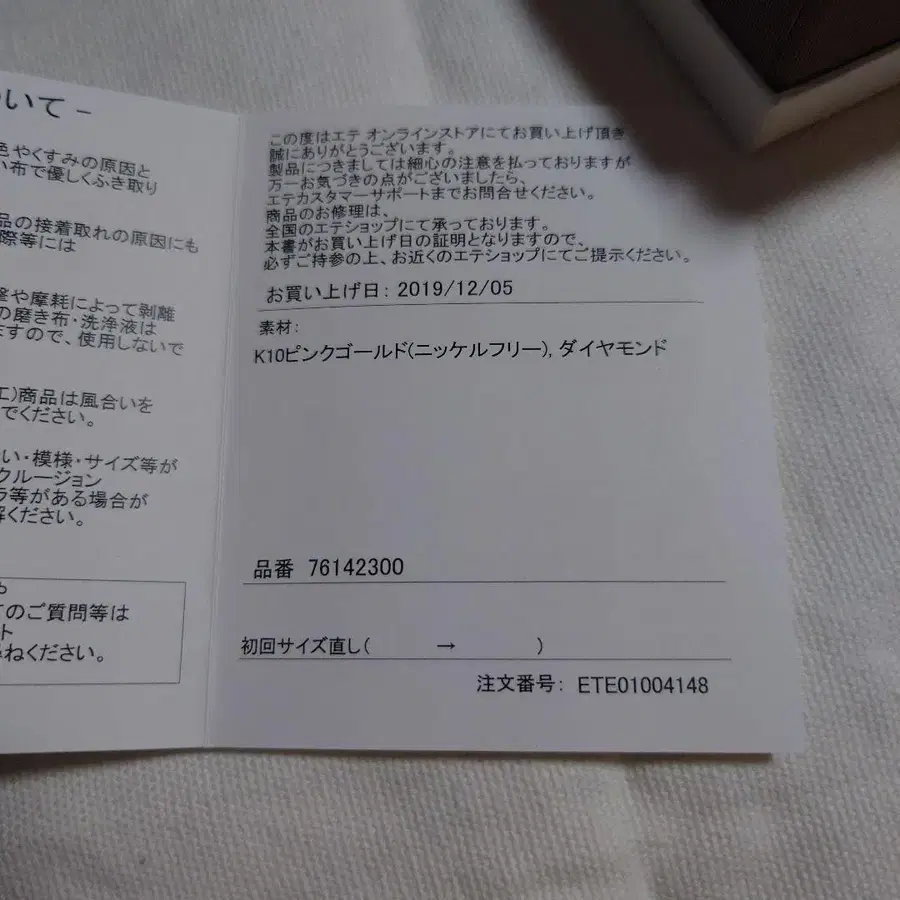 いて -
色やくすみの原因と
い布で優しくふき取り
品の接着取れの原因にも
際等には
撃や摩耗によって剥離
の磨き布・洗浄液は
ますので、使用しないで
工)商品は風合いを
でください。
い・模様・サイズ等が
クルージョン
ラ等がある場合が
解ください。
や
てのご質問等は
ート
ねください。
この度はエテ オンラインストアにてお買い上げ頂き
誠にありがとうございます。
製品につきましては細心の注意を払っておりますが
万一お気づきの点がございましたら、
エテカスタマーサポートまでお問合せください。
商品のお修理は、
全国のエテショップにて承っております。
本書がお買い上げ日の証明となりますので、
必ずご持参の上、お近くのエテショップにてご提示ください。
お買い上げ日: 2019/12/05
素材:
K10ピンクゴールド(ニッケルフリー), ダイヤモンド
品番 76142300
初回サイズ直し( → )
注文番号: ETE01004148